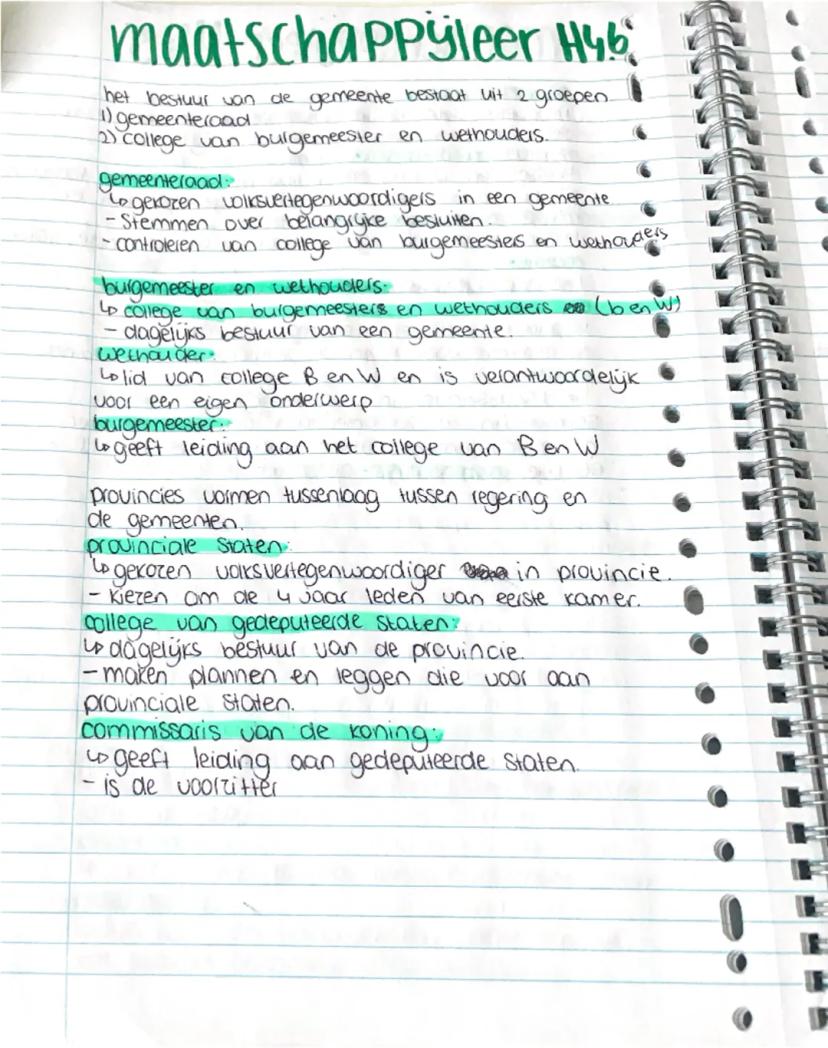 maatschappijleer H4.6
het bestuur van de gemeente bestaat uit 2 groepen
1) gemeenteraad
2) college van burgemeester en wethouders.
gemeenteraad:
↳ gekozen volksvertegenwoordigers in een gemeente
- Stemmen over belangrijke besluiten.
- controleren van college van burgemeesters en wethouders
burgemeester en wethouders:
↳ college van burgemeesters en wethouders (b en W)
- dagelijks bestuur van een gemeente.
wethouder:
↳ lid van college B en W en is verantwoordelijk
voor een eigen onderwerp
burgemeester:
↳ geeft leiding aan het college van B en W
provincies vormen tussenlaag tussen regering en
de gemeenten.
provinciale Staten:
↳ gekozen volksvertegenwoordiger in provincie.
- kiezen om de 4 jaar leden van eerste kamer.
college van gedeputeerde Staten:
↳ dagelijks bestuur van de provincie.
- maken plannen en leggen die voor aan
provinciale Staten.
commissaris van de koning:
↳ geeft leiding aan gedeputeerde Staten.
- is de voorzitter